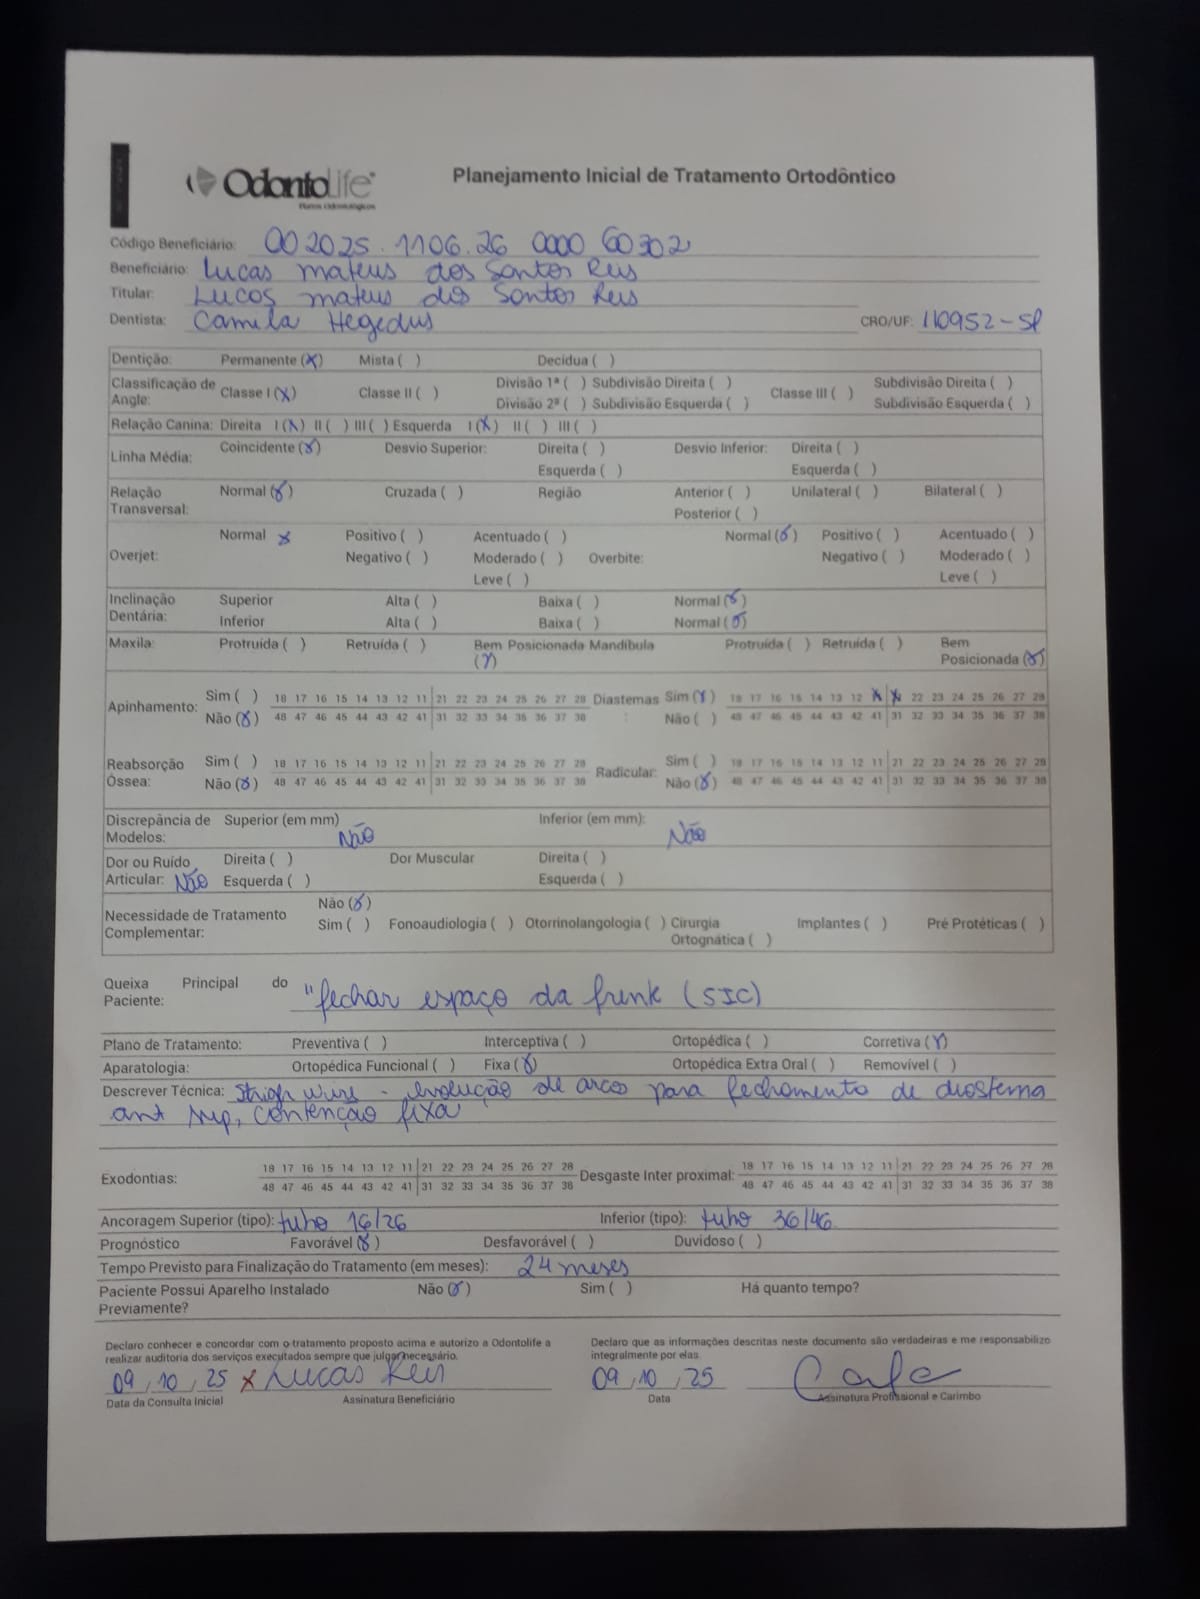 OdontoLife®
Planos Odontológicos
Planejamento Inicial de Tratamento Ortodôntico
Código Beneficiário: 002025.1106.26 0000 60302
Beneficiário: Lucas mateus dos Santos Reis
Titular: Lucas mateus dos Santos Reis
Dentista: Camila Hegedus CRO/UF: 110952-SP
Dentição: Permanente (X) Mista ( ) Decídua ( )
Classificação de Angle: Classe I (X) Classe II ( ) Divisão 1ª ( ) Subdivisão Direita ( ) Classe III ( ) Subdivisão Direita ( )
Divisão 2ª ( ) Subdivisão Esquerda ( ) Subdivisão Esquerda ( )
Relação Canina: Direita I (X) II ( ) III ( ) Esquerda I (X) II ( ) III ( )
Linha Média: Coincidente (X) Desvio Superior: Direita ( ) Desvio Inferior: Direita ( )
Esquerda ( ) Esquerda ( )
Relação Transversal: Normal (X) Cruzada ( ) Região Anterior ( ) Unilateral ( ) Bilateral ( )
Posterior ( )
Normal X Positivo ( ) Acentuado ( ) Normal (X) Positivo ( ) Acentuado ( )
Overjet: Negativo ( ) Moderado ( ) Overbite: Negativo ( ) Moderado ( )
Leve ( ) Leve ( )
Inclinação Dentária: Superior Alta ( ) Baixa ( ) Normal (X)
Inferior Alta ( ) Baixa ( ) Normal (X)
Maxila: Protruída ( ) Retruída ( ) Bem Posicionada (X) Mandíbula Protruída ( ) Retruída ( ) Bem Posicionada (X)
Apinhamento: Sim ( ) 18 17 16 15 14 13 12 11 21 22 23 24 25 26 27 28 Diastemas: Sim (X) 18 17 16 15 14 13 12 X X 22 23 24 25 26 27 28
Não (X) 48 47 46 45 44 43 42 41 31 32 33 34 35 36 37 38 Não ( ) 48 47 46 45 44 43 42 41 31 32 33 34 35 36 37 38
Reabsorção Óssea: Sim ( ) 18 17 16 15 14 13 12 11 21 22 23 24 25 26 27 28 Radicular: Sim ( ) 18 17 16 15 14 13 12 11 21 22 23 24 25 26 27 28
Não (X) 48 47 46 45 44 43 42 41 31 32 33 34 35 36 37 38 Não (X) 48 47 46 45 44 43 42 41 31 32 33 34 35 36 37 38
Discrepância de Modelos: Superior (em mm) Não Inferior (em mm): Não
Dor ou Ruído Articular: Não Direita ( ) Dor Muscular Direita ( )
Esquerda ( ) Esquerda ( )
Não (X)
Necessidade de Tratamento Complementar: Sim ( ) Fonoaudiologia ( ) Otorrinolangologia ( ) Cirurgia Ortognática ( ) Implantes ( ) Pré Protéticas ( )
Queixa Principal do Paciente: "fechar espaço da frente (SIC)
Plano de Tratamento: Preventiva ( ) Interceptiva ( ) Ortopédica ( ) Corretiva (X)
Aparatologia: Ortopédica Funcional ( ) Fixa (X) Ortopédica Extra Oral ( ) Removível ( )
Descrever Técnica: Straigh wire - evolução de arco para fechamento de diastema
ant sup, contenção fixa
Exodontias: 18 17 16 15 14 13 12 11 21 22 23 24 25 26 27 28 Desgaste Inter proximal: 18 17 16 15 14 13 12 11 21 22 23 24 25 26 27 28
48 47 46 45 44 43 42 41 31 32 33 34 35 36 37 38 48 47 46 45 44 43 42 41 31 32 33 34 35 36 37 38
Ancoragem Superior (tipo): tubo 16/26 Inferior (tipo): tubo 36/46
Prognóstico Favorável (X) Desfavorável ( ) Duvidoso ( )
Tempo Previsto para Finalização do Tratamento (em meses): 24 meses
Paciente Possui Aparelho Instalado Previamente? Não (X) Sim ( ) Há quanto tempo?
Declaro conhecer e concordar com o tratamento proposto acima e autorizo a Odontolife a realizar auditoria dos serviços executados sempre que julgar necessário.
Declaro que as informações descritas neste documento são verdadeiras e me responsabilizo integralmente por elas.
09, 10, 25 x Lucas Reis 09, 10, 25
Data da Consulta Inicial Assinatura Beneficiário Data Assinatura Profissional e Carimbo